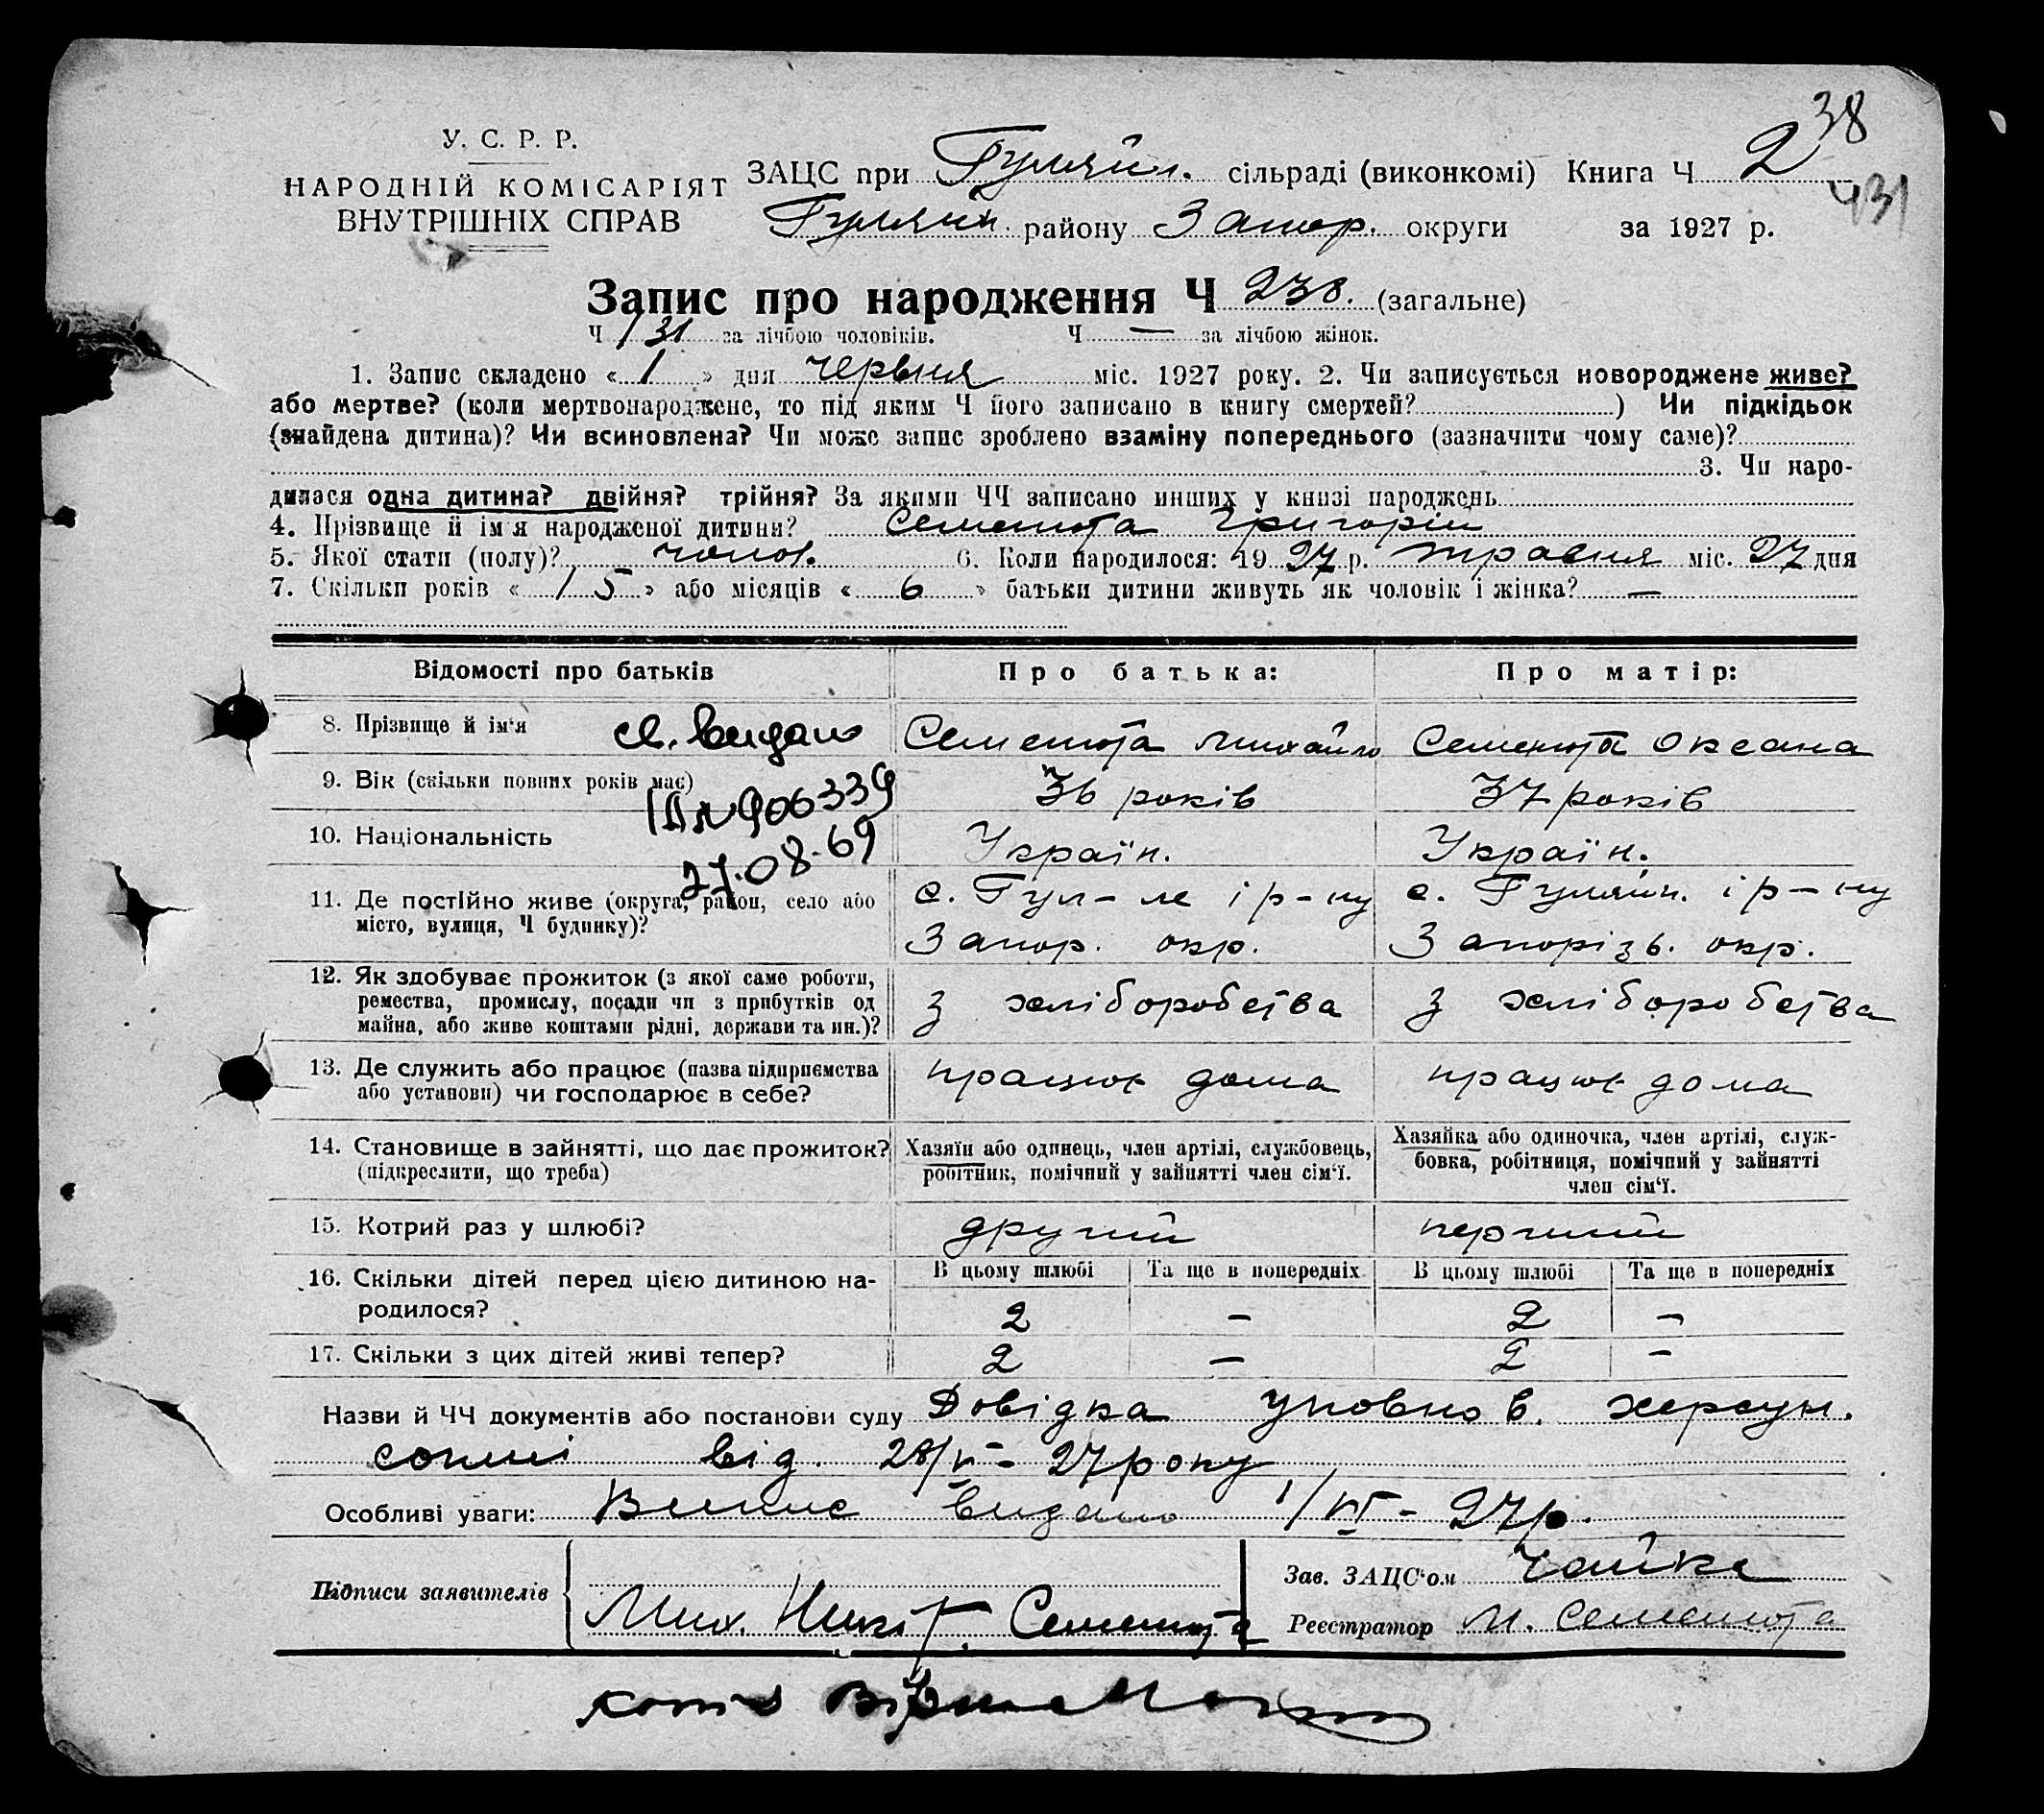 38
У. С. Р. Р.
НАРОДНІЙ КОМІСАРІЯТ
ВНУТРІШНІХ СПРАВ
ЗАЦС при Гуляйп. сільраді (виконкомі) Книга Ч 2
431
Гуляйп. району Запор. округи за 1927 р.
Запис про народження Ч 238. (загальне)
Ч 131 за лічбою чоловіків. Ч — за лічбою жінок.
1. Запис складено « 1 » дня червня міс. 1927 року. 2. Чи записується новороджене живе?
або мертве? (коли мертвонароджене, то під яким Ч його записано в книгу смертей? ) Чи підкідьок
(знайдена дитина)? Чи всиновлена? Чи може запис зроблено взаміну попереднього (зазначити чому саме)?
3. Чи наро-
дилася одна дитина? двійня? трійня? За якими ЧЧ записано инших у книзі народжень
4. Прізвище й ім'я народженої дитини? Семенюта Григорій
5. Якої стати (полу)? чолов. 6. Коли народилося: 1927 р. травня міс. 27 дня
7. Скільки років « 15 » або місяців « 6 » батьки дитини живуть як чоловік і жінка? —
Відомості про батьків Про батька: Про матір:
8. Прізвище й ім'я св. видано Семенюта Михайло Семенюта Оксана
9. Вік (скільки повних років має) 36 років 37 років
906339
10. Національність Україн. Україн.
27.08.69
11. Де постійно живе (округа, район, село або
місто, вулиця, Ч будинку)?
с. Гул-ле і р-ну с. Гуляйп. і р-ну
Запор. окр. Запорізь. окр.
12. Як здобуває прожиток (з якої саме роботи,
ремества, промислу, посади чи з прибутків од
майна, або живе коштами рідні, держави та ин.)?
з хліборобства з хліборобства
13. Де служить або працює (назва підприємства
або установи) чи господарює в себе?
працює дома працює дома
14. Становище в зайнятті, що дає прожиток?
(підкреслити, що треба)
Хазяїн або одинець, член артілі, службовець,
робітник, помічний у зайнятті член сім'ї.
Хазяйка або одиночка, член артілі, служ-
бовка, робітниця, помічний у зайнятті
член сім'ї.
15. Котрий раз у шлюбі? другий перший
16. Скільки дітей перед цією дитиною на-
родилося?
В цьому шлюбі Та ще в попередніх В цьому шлюбі Та ще в попередніх
2 — 2 —
17. Скільки з цих дітей живі тепер? 2 — 2 —
Назви й ЧЧ документів або постанови суду Довідка уповнов. херсун.
сотні від 28/V - 27 року
Особливі уваги: Випис видано 1/VI - 27р.
Підписи заявителів Мих. Никит. Семенюта
Зав. ЗАЦС'ом Чайка
Реєстратор М. Семенюта
копія вірна